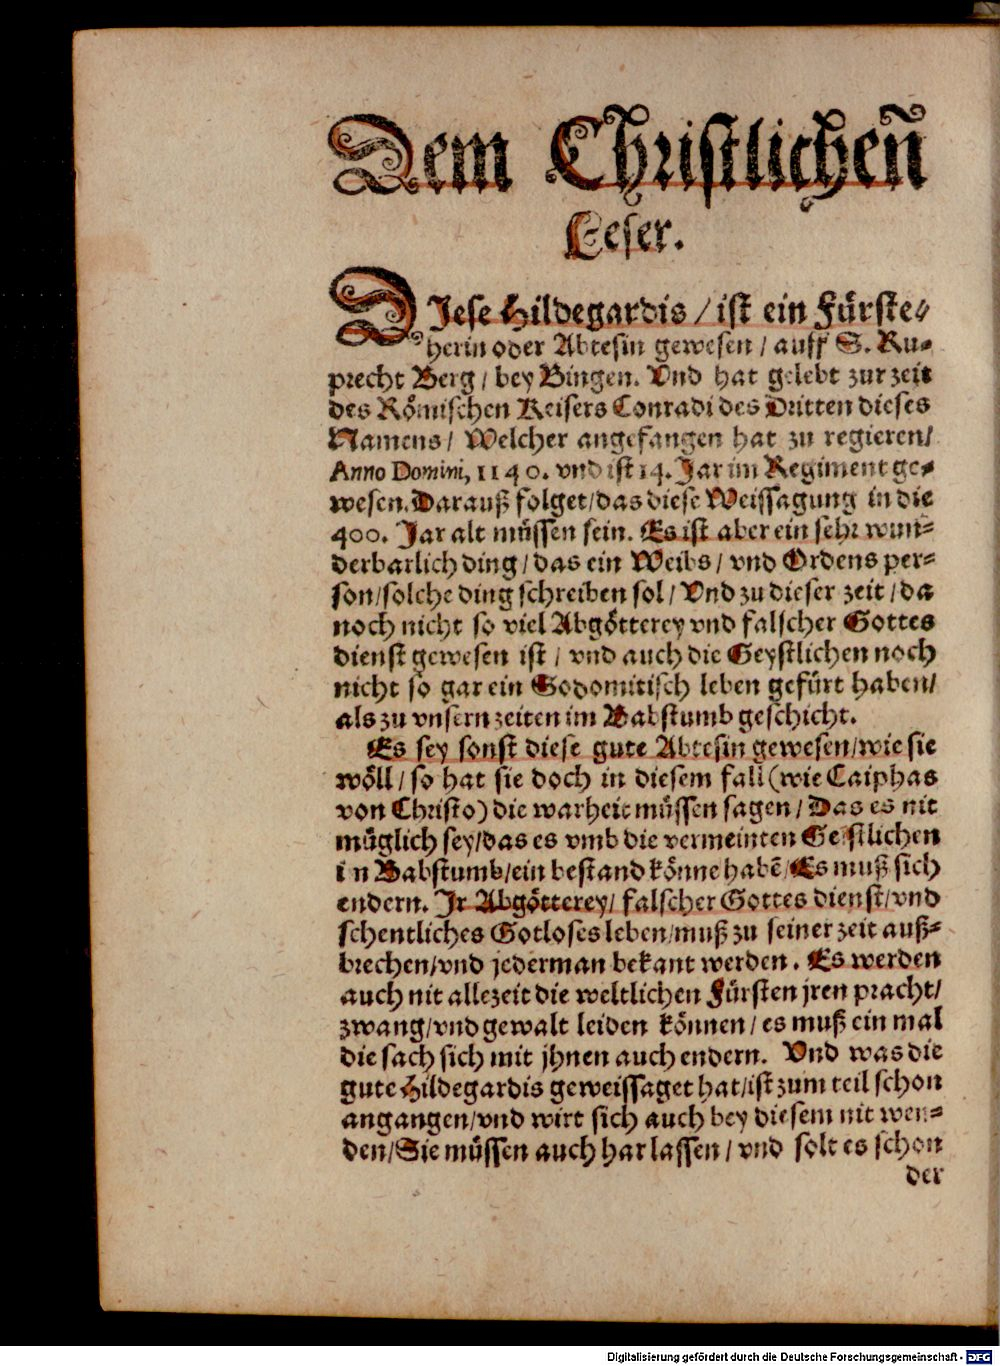 Dem Christlichen̄
Leser.
DIese Hildegardis / ist ein Fürste⸗
herin oder Abtesin gewesen / auff S. Ru⸗
precht Berg / bey Bingen. Vnd hat gelebt zur zeit
des Römischen Keisers Conradi des Dritten dieses
Namens / Welcher angefangen hat zu regieren /
Anno Domini, 1140. vnd ist 14. Jar im Regiment ge⸗
wesen. Darauß folget / das diese Weissagung in die
400. Jar alt müssen sein. Es ist aber ein sehr wun⸗
derbarlich ding / das ein Weibs / vnd Ordens per⸗
son / solche ding schreiben sol / Vnd zu dieser zeit / da
noch nicht so viel Abgötterey vnd falscher Gottes
dienst gewesen ist / vnd auch die Geystlichen noch
nicht so gar ein Sodomitisch leben gefürt haben /
als zu vnsern zeiten im Babstumb geschicht.
Es sey sonst diese gute Abtesin gewesen / wie sie
wöll / so hat sie doch in diesem fall (wie Caiphas
von Christo) die warheit müssen sagen / Das es nit
müglich sey / das es vmb die vermeinten Geistlichen
in Babstumb / ein bestand könne habē / Es muß sich
endern. Jr Abgötterey / falscher Gottes dienst / vnd
schentliches Gotloses leben / muß zu seiner zeit auß⸗
brechen / vnd jederman bekant werden. Es werden
auch nit allezeit die weltlichen Fürsten jren pracht /
zwang / vnd gewalt leiden können / es muß ein mal
die sach sich mit jhnen auch endern. Vnd was die
gute Hildegardis geweissaget hat / ist zum teil schon
angangen / vnd wirt sich auch bey diesem nit wen⸗
den / Sie müssen auch har lassen / vnd solt es schon
der
Digitalisierung gefördert durch die Deutsche Forschungsgemeinschaft - DFG